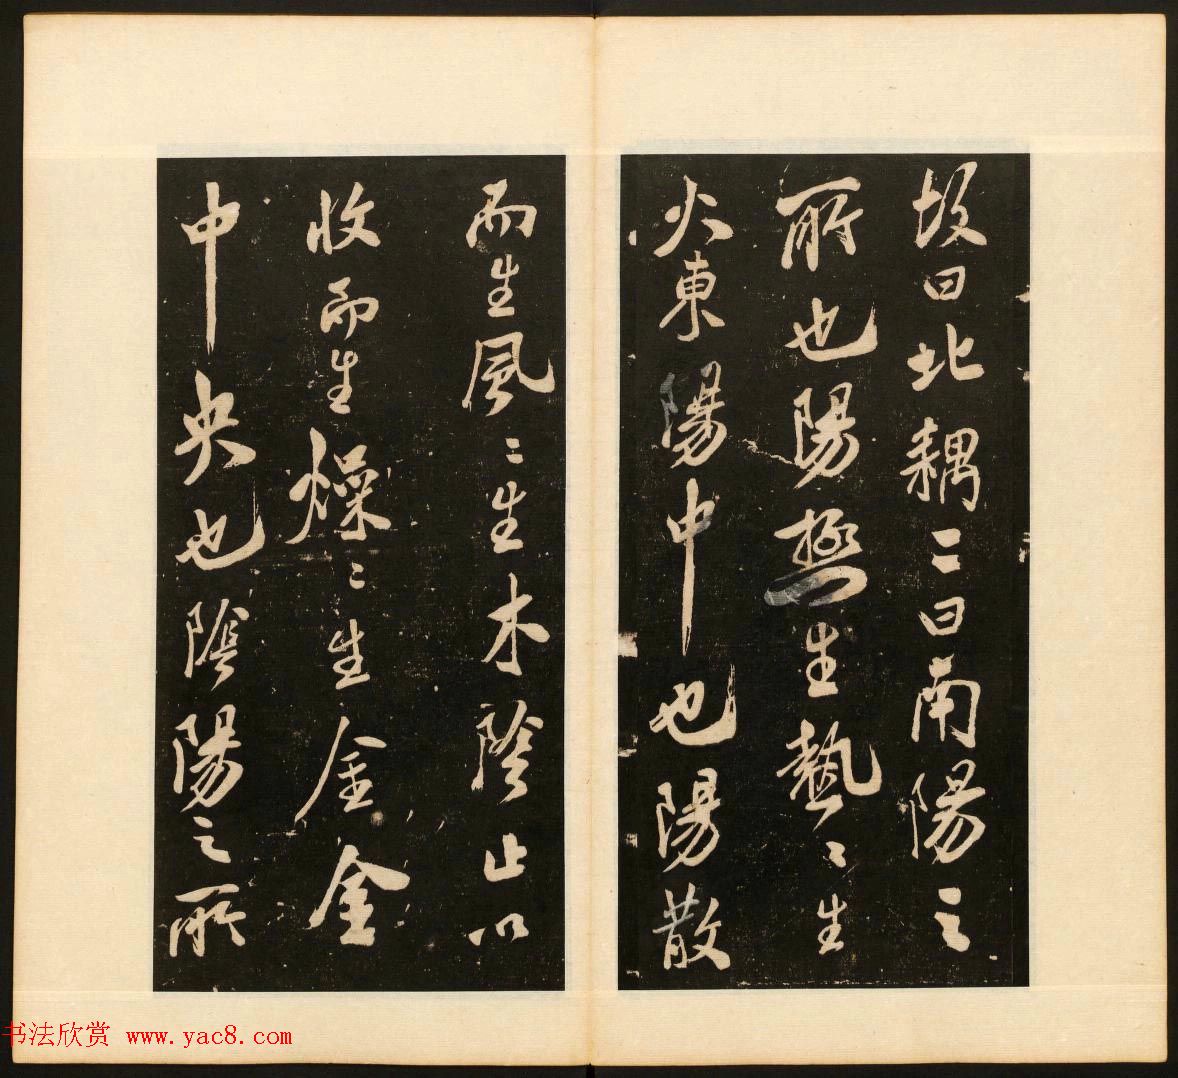 故曰北耦二曰南陽之
所也陽極生热〻生
火東陽中也陽散
而生風〻生木陰止以
收而生燥〻生金金
中央也陰陽之所
书法欣赏 www.yac8.com